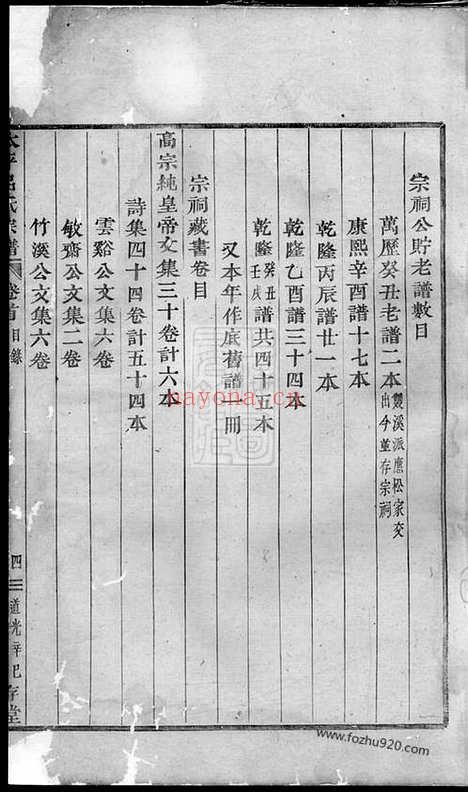 宗祠公貯老譜數目
萬歷癸丑老譜二本 雙溪派應松家交出今並存宗祠
康熙辛酉譜十七本
乾隆丙辰譜廿一本
乾隆乙酉譜三十四本
乾隆癸丑壬戌譜共四十五本
又本年作底舊譜一冊
宗祠藏書卷目
高宗純皇帝文集三十卷計六本
詩集四十四卷計五十四本
雲谿公文集六卷
敏齋公文集二卷
竹溪公文集六卷
呂氏宗譜 卷首 目錄 四 道光辛巳存堂
nayona.cn
www.fozhu920.com